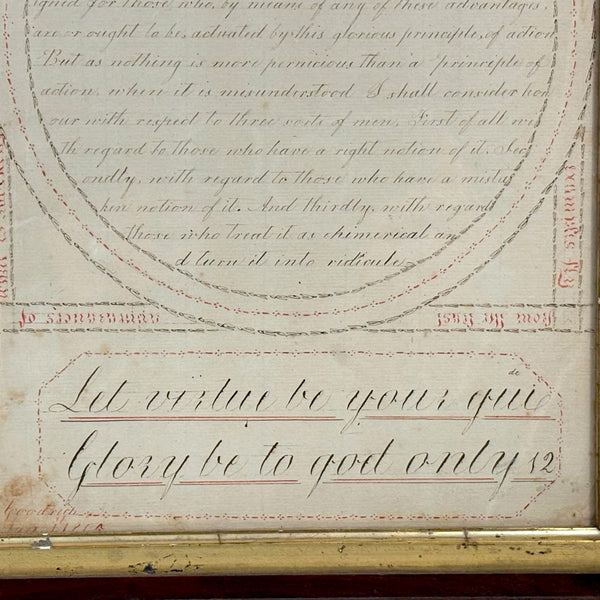 signed for those, who, by means of any of these advantages
are or ought to be, actuated by this glorious principle, of action
But as nothing is more pernicious than a principle of
action, when it is misunderstood I shall consider hon
our with respect to three sorts of men. First of all wi
th regard to those who have a right notion of it. Sec
ondly, with regard to those who have a mista
ken notion of it. And thirdly, with regard
those who treat it as chimerical an
d turn it into ridicule
Let virtue be your gui
de
Glory be to god only 12
Goodrich